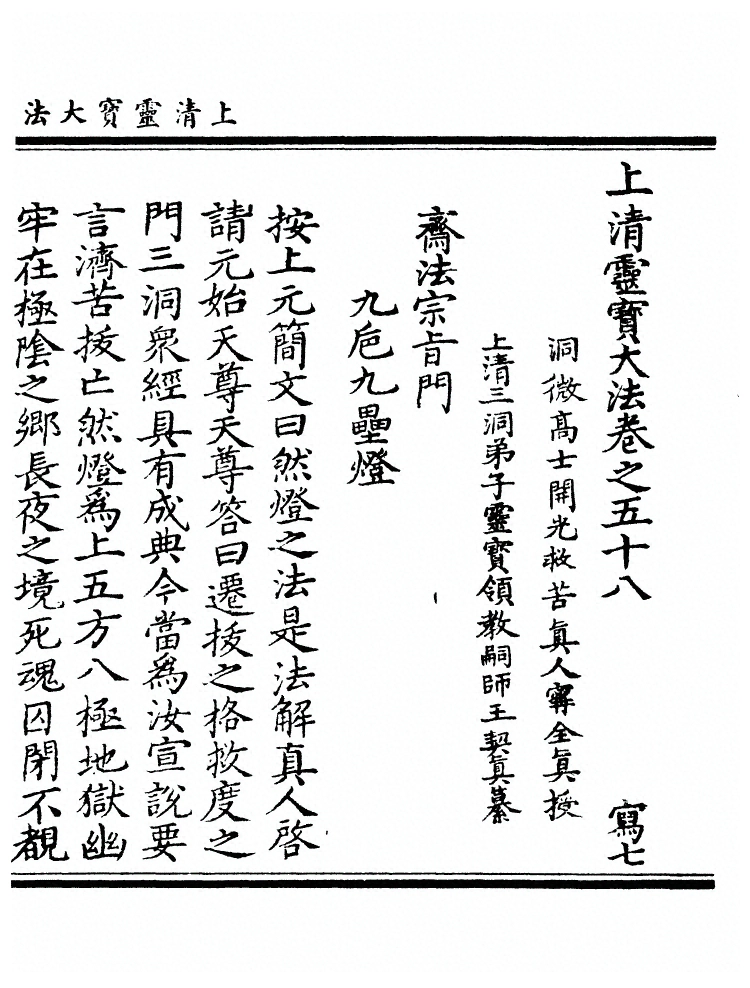 上清靈寶大法
上清靈寶大法卷之五十八　寫七
洞微高士開光救苦眞人寗全眞授
上清三洞弟子靈寶領教嗣師王契眞纂
齋法宗旨門
九巵九壘燈
按上元簡文曰然燈之法是法解真人啓
請元始天尊天尊答曰遷拔之格救度之
門三洞衆經具有成典今當爲汝宣說要
言濟苦拔亡然燈爲上五方八極地獄幽
牢在極陰之鄉長夜之境死魂囚閉不覩